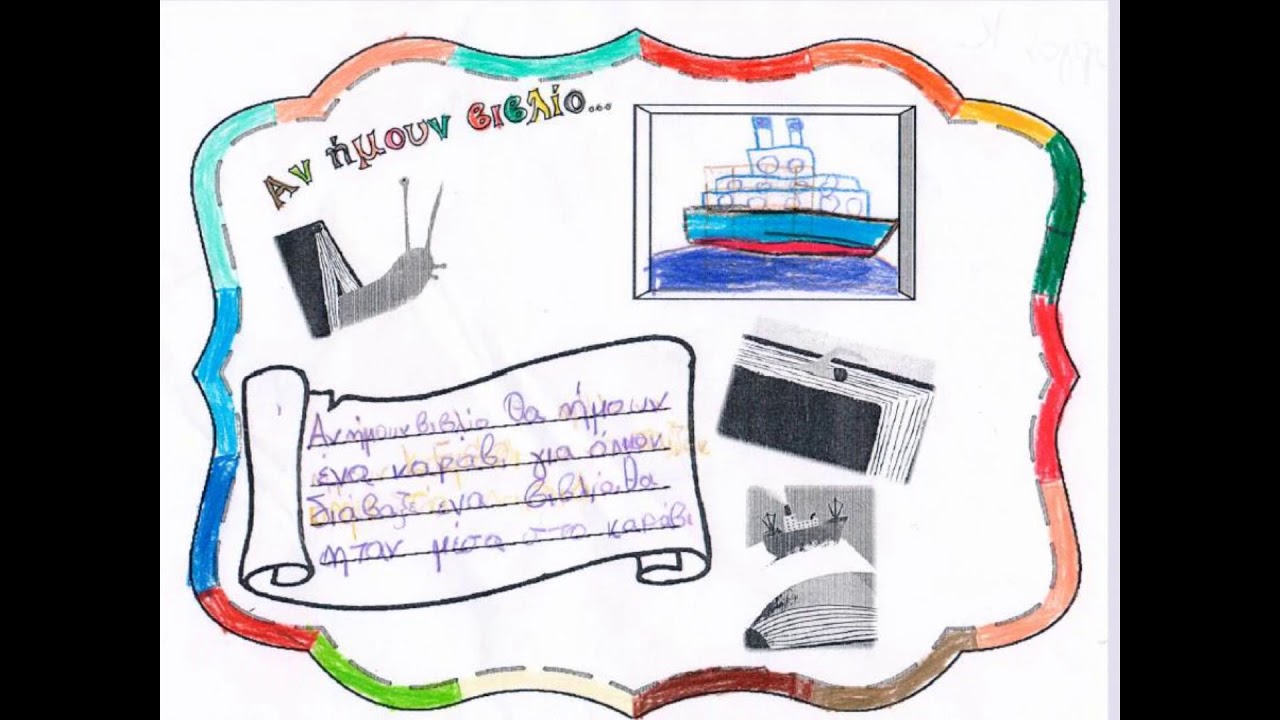 Αν ήμουν βιβλίο...
Αν ήμουν βιβλίο θα ήμουν
ένα καράβι για όποιον
διάβαζε ένα βιβλίο θα
ηταν μέσα στο καράβι